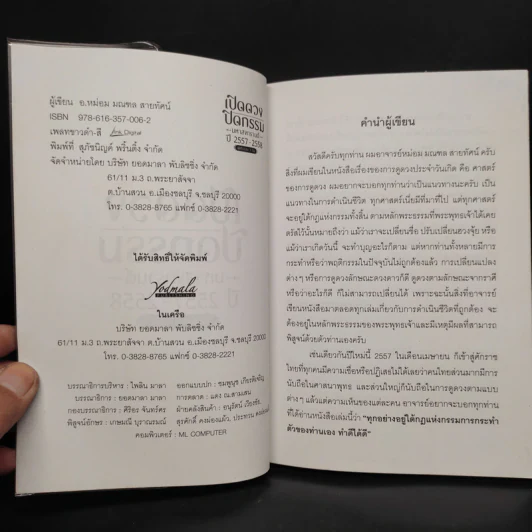 เปิดดวง
ปิดกรรม
ปี 2557-2558
ผู้เขียน อ.หม่อม มณฑล สายทัศน์
ISBN 978-616-357-006-2
เพลทขาวดำ-สี Digital
พิมพ์ที่ สุภัชนิญค์ พริ้นติ้ง จำกัด
จัดจำหน่ายโดย บริษัท ยอดมาลา พับลิชชิ่ง จำกัด
61/11 ม.3 ถ.พระยาสัจจา
ต.บ้านสวน อ.เมืองชลบุรี จ.ชลบุรี 20000
โทร. 0-3828-8765 แฟกซ์ 0-3828-2221
ได้รับสิทธิ์ให้จัดพิมพ์
Yodmala
PUBLISHING
ในเครือ
บริษัท ยอดมาลา พับลิชชิ่ง จำกัด
61/11 ม.3 ถ.พระยาสัจจา ต.บ้านสวน อ.เมืองชลบุรี จ.ชลบุรี 20000
โทร. 0-3828-8765 แฟกซ์ 0-3828-2221
บรรณาธิการบริหาร : ไพลิน มาลา
บรรณาธิการ : ยอดมาลา มาลา
กองบรรณาธิการ : ศิริอร จันทร์ศร
พิสูจน์อักษร : เกษมณี บุราณรมณ์
คอมพิวเตอร์ : ML COMPUTER
ออกแบบปก : ชมพูนุช เกียรติเชิญ
การตลาด : แดง ณ.สวนเสน
ฝ่ายคลังสินค้า : อนุรัตน์
สุรศักดิ์ คงผ่องแผ้ว, ประพรรณ
คำนำผู้เขียน
สวัสดีครับทุกท่าน ผมอาจารย์หม่อม มณฑล สายทัศน์ ครับ
สิ่งที่ผมเขียนในหนังสือเรื่องของการดูดวงประจำวันเกิด คือ ศาสตร์
ของการดูดวง ผมอยากจะบอกทุกท่านว่าเป็นแนวทางนะครับ เป็น
แนวทางในการดำเนินชีวิต ทุกศาสตร์เมื่อมีที่มาที่ไป แต่ทุกศาสตร์
จะอยู่ใต้กฎแห่งกรรมทั้งสิ้น ตามหลักพระธรรมที่พระพุทธเจ้าได้เคย
ตรัสไว้นั่นหมายถึงว่า แม้ว่าเราจะเปลี่ยนชื่อ ปรับเปลี่ยนฮวงจุ้ย หรือ
แม้ว่าเราเกิดวันนี้ จะทำบุญอะไรก็ตาม แต่หากท่านทั้งหลายมีการ
กระทำหรือว่าพฤติกรรมในปัจจุบันไม่ถูกต้องแล้ว การเปลี่ยนแปลง
ต่างๆ หรือการดูดวงลักษณะดวงดาวก็ดี ดูดวงตามลักษณะจากราศี
หรือว่าอะไรก็ดี ก็ไม่สามารถเปลี่ยนได้ เพราะฉะนั้นสิ่งที่อาจารย์
เขียนหนังสือมาตลอดทุกเล่มเกี่ยวกับการดำเนินชีวิตที่ถูกต้อง จะ
ต้องอยู่ในหลักพระธรรมของพระพุทธเจ้าและมีเหตุมีผลที่สามารถ
พิสูจน์ด้วยตัวท่านเองครับ
เช่นเดียวกันปีใหม่นี้ 2557 ในเดือนเมษายน ก็เข้าสู่ศักราช
ไทยที่ทุกคนมีความเชื่อหรือปฏิเสธไม่ได้เลยว่าคนไทยส่วนมากมีการ
นับถือในศาสนาพุทธ และส่วนใหญ่ก็นับถือในการดูดวงตามแบบ
ต่างๆ แล้วแต่ความเห็นของแต่ละคน อาจารย์อยากจะบอกทุกท่าน
ที่ได้อ่านหนังสือเล่มนี้ว่า "ทุกอย่างอยู่ใต้กฎแห่งกรรมการกระทำ
ตัวของท่านเอง ทำดีได้ดี"